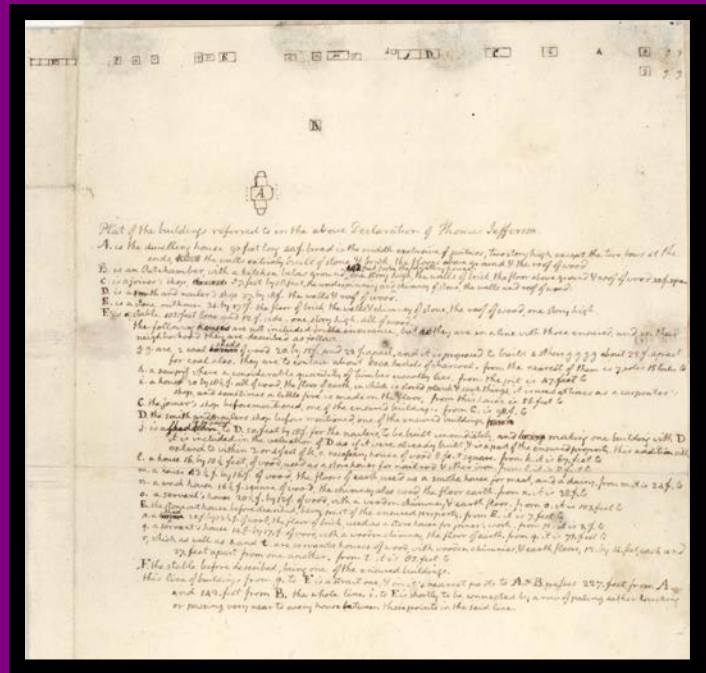 B
A
Plat of the buildings referred to in the above Declaration of Thomas Jefferson.
A. is the dwelling house 90 feet long broad in the middle exclusive of porticos, two story high except the two bows at the
ends, the walls entirely built of stone & brick, the floors above ground & the roof of wood.
B. is an Outchamber, with a kitchen below ground, one story high, the walls of brick the floor above ground & roof of wood
C. is a joiner's shop, 57 feet by 18 feet, the underpinning and chimney of stone, the walls and roof of wood.
D. is a smith and nailer's shop 37 by 18 f. the walls & roof of wood.
E. is a stone outhouse 34. by 17 f. the floor of brick the walls & chimney of stone, the roof of wood, one story high
F. is a stable. 105 feet long and 12 f. wide. one story high. all of wood.
the following houses are not included in the insurance, but as they are in a line with those insured, and in their
neighborhood they are described as follows.
g. g. are 2 coal sheds of wood 20 by 15 f. and 23 f. apart, and it is proposed to build 2 others g g g g about 23 f. apart
for coal also. they are to contain about bushels of charcoal. from the nearest of them is 7 poles 15 links to
h. a sawpit where a considerable quantity of lumber usually lies. from the pit is 47 feet to
i. a house 20 by 18 f. all of wood, the floor of earth, in which is stored plank & such things, it is used at times as a carpenter's
shop, and sometimes a little fire is made on the floor, from this house is feet to
C. the joiner's shop beforementioned, one of the insured buildings. from C. is f. to
D. the smith and nailers shop before mentioned, one of the insured buildings
j. is to D. 50 feet by 18 f. for the nailers, to be built immediately, and making one building with D
it is included in the valuation of D. as if it were already built, & is a part of the ensured property. this addition will
extend to within 2. or 3 feet of k. a necessary house of wood 8 feet square. from k. it is feet to
l. a house 16 by 10½ feet, of wood, used as a storehouse for nailrod & other iron. from l. it is feet to
m. a house 43½ f. by 16 f. of wood, the floors of earth, used as a smoke house for meat, and a dairy. from m. it is 22 f. to
n. a wash house 16½ f. square of wood, the chimney also wood, the floor earth. from n. it is f. to
o. a servant's house 20½ f. by 12 f. of wood, with a wooden chimney, & earth floor. from o. it is 103 feet to
E. the stone out house before described, being part of the ensured property. from E. it is feet to
p. a shed 25 f. by f. of wood, the floor of brick, used as a store house for joiners work. from p. it is f. to
q. a servant's house 14 f. by 17 f. of wood, with a wooden chimney, the floor of earth. from q. it is feet to
r. which as well as s. and t. are servants houses of wood, with wooden chimnies, & earth floors, 12. by 14 feet, each and
27 feet apart from one another. from t. it is feet to
F. the stable before described, being one of the ensured buildings.
this line of buildings from g. to F. is a strait one, & in it's nearest part to A & B, passes 227. feet from A
and 149. feet from B. the whole line i. to F is shortly to be connected by a row of paling either touching
or passing very near to every house between these points in the said line.